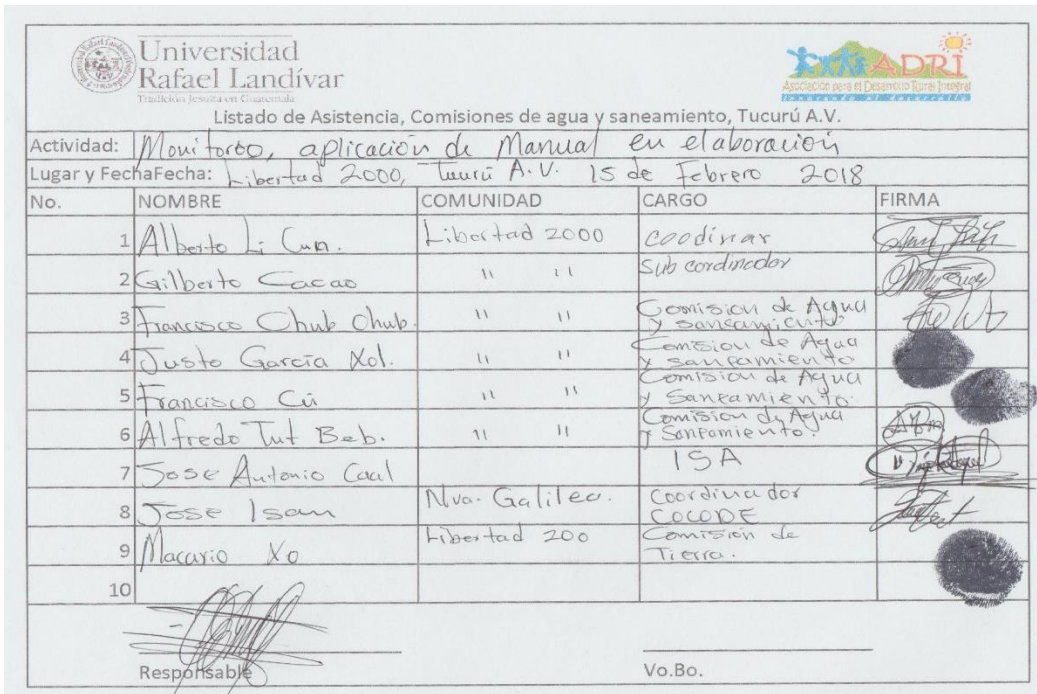 Universidad
Rafael Landívar
Tradición Jesuita en Guatemala
ADRI
Asociación para el Desarrollo Rural Integral
innovando el desarrollo
Listado de Asistencia, Comisiones de agua y saneamiento, Tucurú A.V.
Actividad: Monitoreo, aplicación de Manual en elaboración
Lugar y FechaFecha: Libertad 2000, Tucurú A.V. 15 de Febrero 2018
No. NOMBRE COMUNIDAD CARGO FIRMA
1 Alberto Li Cun. Libertad 2000 coodinar
2 Gilberto Cacao " " Sub cordinador
3 Francisco Chub Chub. " " Comision de Agua
y saneamiento
4 Justo García Xol. " " Comision de Agua
y saneamiento
5 Francisco Cú " " Comision de Agua
y Saneamiento.
6 Alfredo Tut Beb. " " Comision de Agua
y Saneamiento.
7 Jose Antonio Caal ISA
8 Jose Isam Nva. Galilea. Coordinador
COCODE
9 Macario Xo Libertad 200 Comisión de
Tierra.
10
Responsable Vo.Bo.